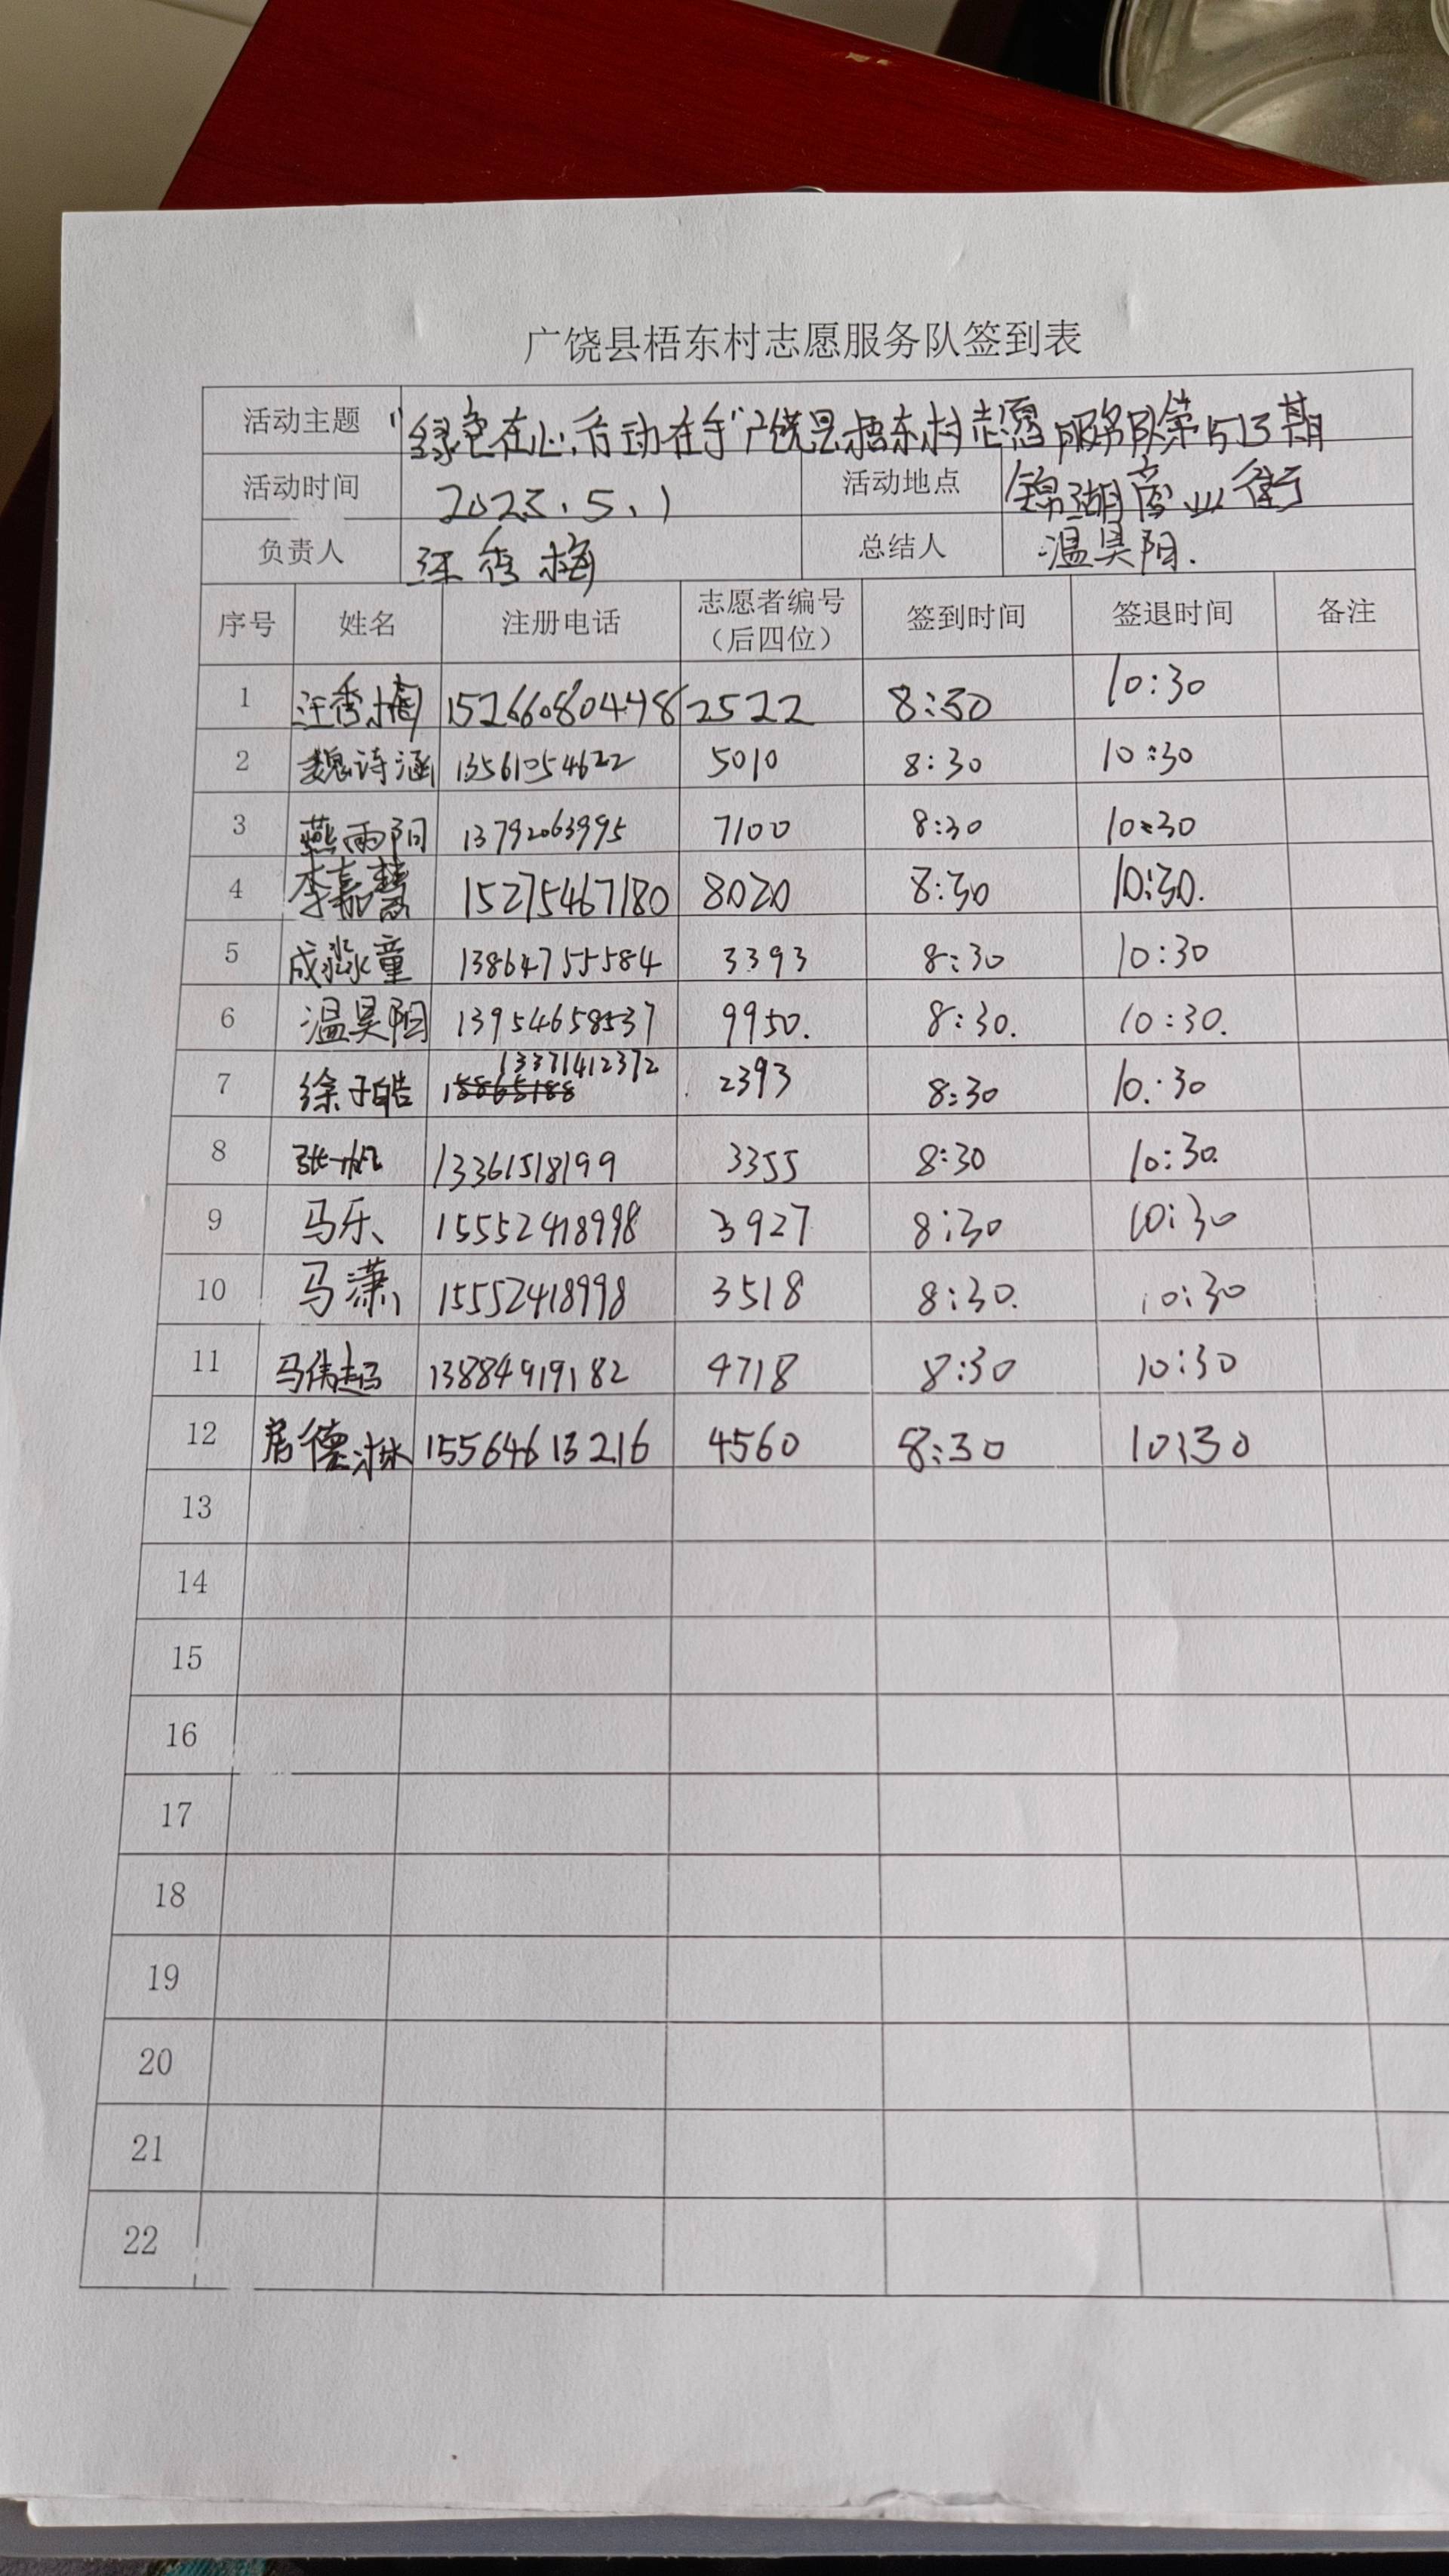 广饶县梧东村志愿服务队签到表
活动主题 "绿色在心,活动在手"广饶县梧东村志愿服务队第513期
活动时间 2023.5.1 活动地点 锦湖商业街
负责人 汪秀梅 总结人 温昊阳.
序号 姓名 注册电话 志愿者编号（后四位） 签到时间 签退时间 备注
1 汪秀梅 15266080448 2522 8:30 10:30
2 魏诗涵 13561054622 5010 8:30 10:30
3 燕雨阳 13792063995 7100 8:30 10:30
4 李嘉慧 15275467180 8020 8:30 10:30.
5 成淼童 13864755584 3393 8:30 10:30
6 温昊阳 13954658537 9950. 8:30. 10:30.
7 徐子皓 13371412372 2393 8:30 10:30
8 张一帆 13361518199 3355 8:30 10:30.
9 马乐 15552418998 3927 8:30 10:30
10 马潇 15552418998 3518 8:30. 10:30
11 马伟超 13884919182 4718 8:30 10:30
12 德 15564613216 4560 8:30 10:30
13
14
15
16
17
18
19
20
21
22